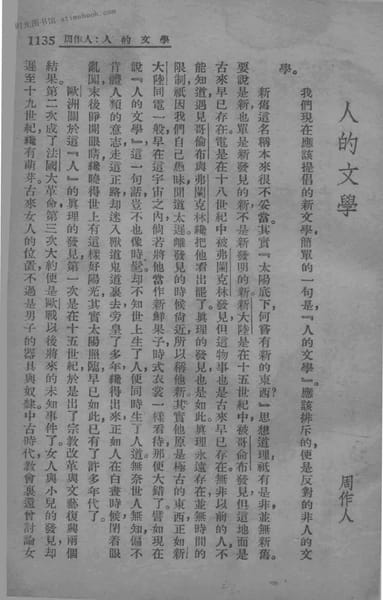 1135 周作人：人的文學
人的文學
周作人
我們現在應該提倡的新文學，簡單的一句是，『人的文學。』應該排斥的，便是反對的非人的文
學。
新舊這名稱，本來很不妥當。其實『太陽底下，何嘗有新的東西？』思想道理，祇有是非，並無新舊。
要說是新，也單是新發見的新，不是新發明的新。新大陸是在十五世紀中，被哥倫布發見，但這地面是
古來早已存在。電是在十八世紀中，被弗蘭克林發見，但這物事也是古來早已存在。無非以前的人，不
能知道，遇見哥倫布與弗蘭克林纔把他看出罷了。真理的發見，也是如此。真理永遠存在，並無時間的
限制，祇因我們自己愚昧，聞道太遲，離發見的時候尚近，所以稱他新。其實他原是極古的東西，正如新
大陸同電一般，早在這宇宙之內，倘若將他當作新鮮果子、時式衣裳一樣看待，那便大錯了。譬如現在
說『人的文學，』這一句話，豈不也像時髦。卻不知世上生了人，便同時生了人道。無奈世人無知，偏不
肯體人類的意志，走這正路，卻迷入獸道鬼道裏去，旁皇了多年，纔得出來。正如人在白晝時候，閉着眼
亂闖，末後睜開眼睛，纔曉得世上有這樣好陽光；其實太陽照臨，早已如此，已有了許多年代了。
歐洲關於這『人』的真理的發見，第一次是在十五世紀，於是出了宗教改革與文藝復興兩個
結果。第二次成了法國大革命，第三次大約便是歐戰以後將來的未知事件了。女人與小兒的發見，卻
遲至十九世紀，纔有萌芽。古來女人的位置，不過是男子的器具與奴隸。中古時代，教會裏還曾討論女